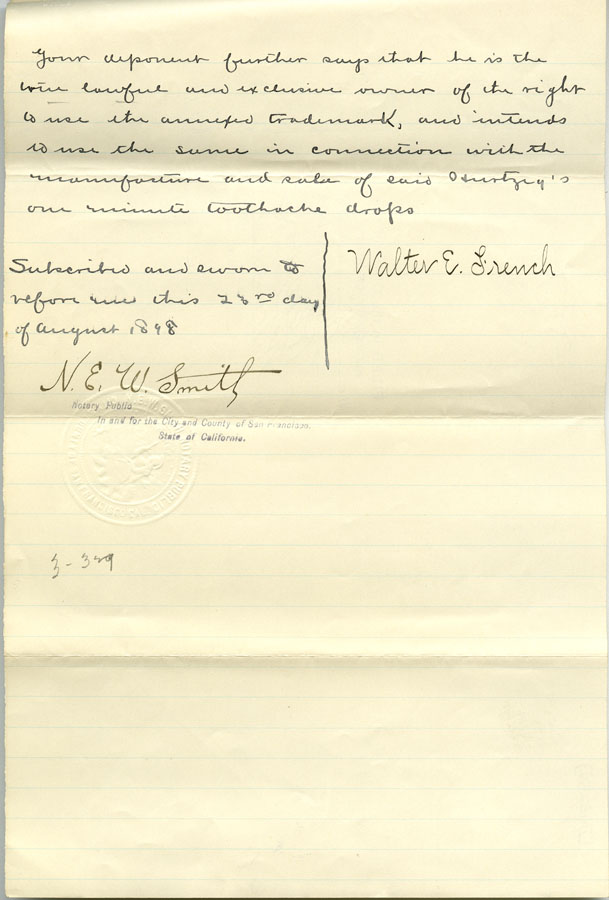 Your deponent further says that he is the
true lawful and exclusive owner of the right
to use the annexed trademark, and intends
to use the same in connection with the
manufacture and sale of said
one minute toothache drops
Walter E. French
Subscribed and sworn to
before me this 23rd day
of August 1898
N. E. W. Smith
Notary Public
In and for the City and County of San Francisco.
State of California.
3-329